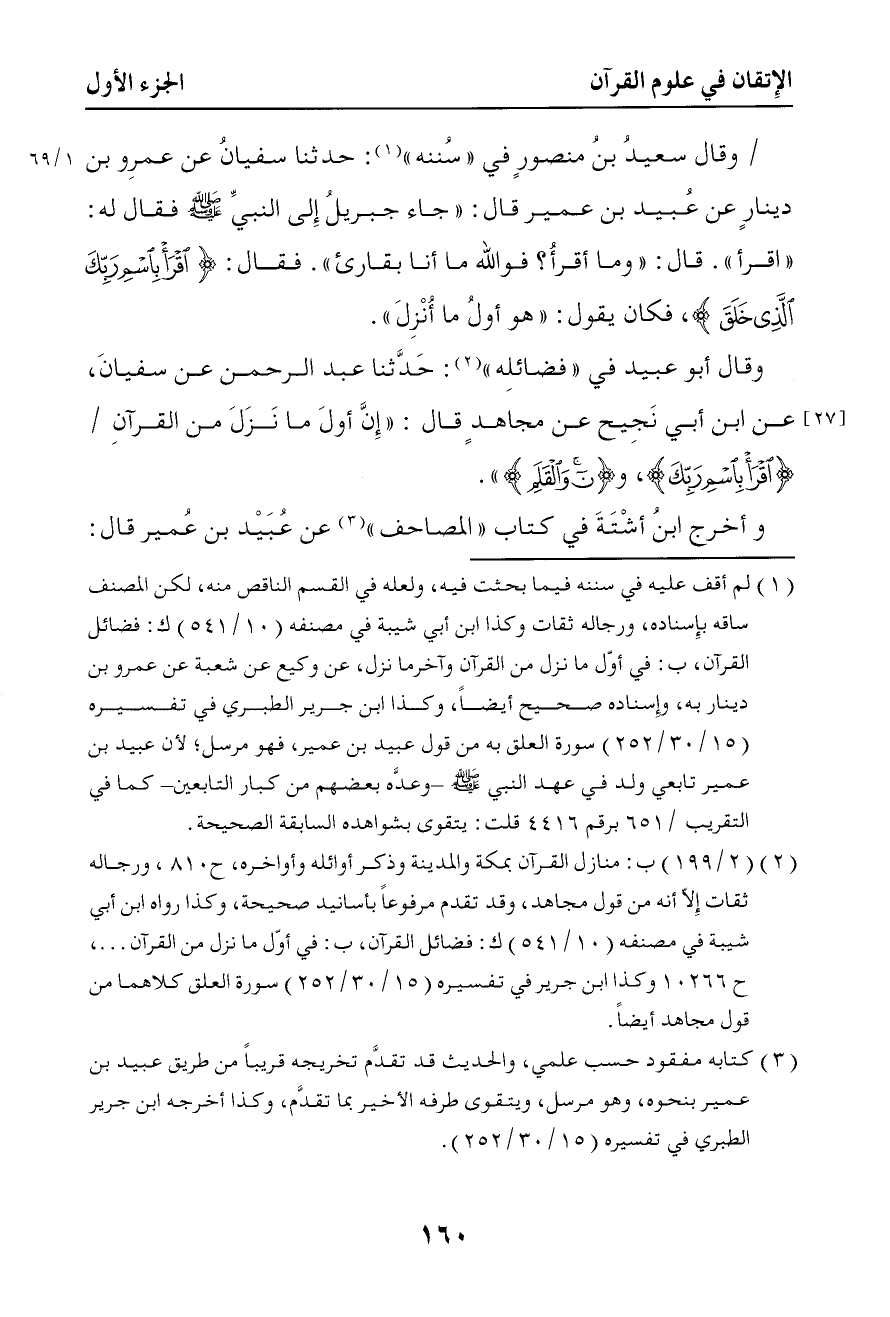 الإتقان في علوم القرآن الجزء الأول
/ وقال سعيدُ بنُ منصورٍ في «سُننه»(١): حدثنا سفيانُ عن عمرِو بن ٦٩/١
دينارٍ عن عُبيد بن عمير قال: «جاء جبريلُ إلى النبيِّ ﷺ فقال له:
«اقرأ». قال: «وما أقرأُ؟ فوالله ما أنا بقارئ». فقال: ﴿ ٱقْرَأْ بِٱسْمِ رَبِّكَ
ٱلَّذِى خَلَقَ ﴾، فكان يقول: «هو أولُ ما أُنْزِلَ».
وقال أبو عبيد في «فضائله»(٢): حَدَّثنا عبد الرحمن عن سفيانَ،
[٢٧] عن ابن أبي نَجِيح عن مجاهدٍ قال : «إنَّ أولَ ما نَزَلَ من القرآنِ /
﴿ٱقْرَأْ بِٱسْمِ رَبِّكَ﴾، و﴿نٓ وَٱلْقَلَمِ ﴾».
و أخرج ابنُ أشْتَةَ في كتاب «المصاحف»(٣) عن عُبَيْد بن عُمير قال:
(١) لم أقف عليه في سننه فيما بحثت فيه، ولعله في القسم الناقص منه، لكن المصنف
ساقه بإسناده، ورجاله ثقات وكذا ابن أبي شيبة في مصنفه (٥٤١/١٠) ك: فضائل
القرآن، ب: في أوّل ما نزل من القرآن وآخرما نزل، عن وكيع عن شعبة عن عمرو بن
دينار به، وإسناده صحيح أيضاً، وكذا ابن جرير الطبري في تفسيره
(٢٥٢/٣٠/١٥) سورة العلق به من قول عبيد بن عمير، فهو مرسل؛ لأن عبيد بن
عمير تابعي ولد في عهد النبي ﷺ –وعدَّه بعضهم من كبار التابعين– كما في
التقريب /٦٥١ برقم ٤٤١٦ قلت: يتقوى بشواهده السابقة الصحيحة.
(٢) (١٩٩/٢) ب: منازل القرآن بمكة والمدينة وذكر أوائله وأواخره، ح٨١٠ ، ورجاله
ثقات إلاّ أنه من قول مجاهد، وقد تقدم مرفوعاً بأسانيد صحيحة، وكذا رواه ابن أبي
شيبة في مصنفه (٥٤١/١٠) ك: فضائل القرآن، ب: في أوّل ما نزل من القرآن ...،
ح ١٠٢٦٦ وكذا ابن جرير في تفسيره (٢٥٢/٣٠/١٥) سورة العلق كلاهما من
قول مجاهد أيضاً.
(٣) كتابه مفقود حسب علمي، والحديث قد تقدَّم تخريجه قريباً من طريق عبيد بن
عمير بنحوه، وهو مرسل، ويتقوى طرفه الأخير بما تقدَّم، وكذا أخرجه ابن جرير
الطبري في تفسيره (٢٥٢/٣٠/١٥).
١٦٠